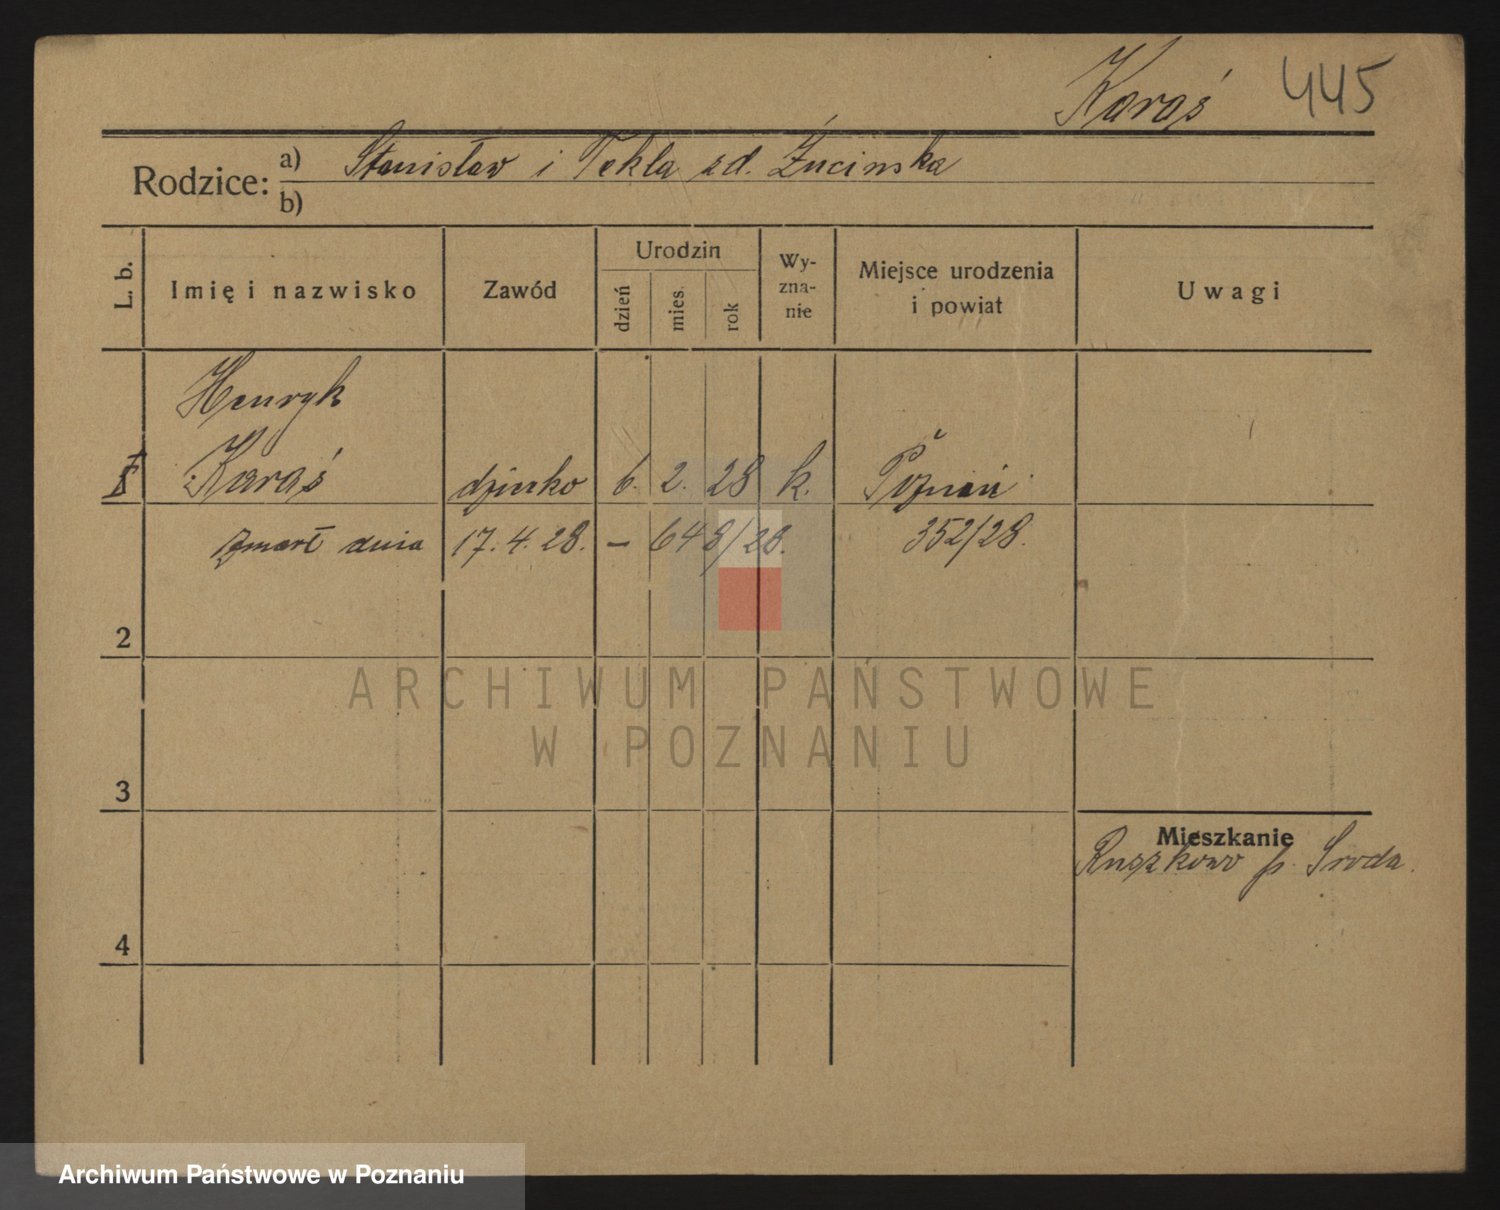 Karaś 445
Rodzice: a) Stanisław i Tekla zd. Żucinska
b)
L. b. Imię i nazwisko Zawód Urodzin dzień mies. rok Wy-zna-nie Miejsce urodzenia i powiat Uwagi
Henryk
Karaś dziecko 6. 2. 28 k. Poznań
zmarł dnia 17. 4. 28. – 648/28. 352/28.
2
ARCHIWUM PAŃSTWOWE
W POZNANIU
3
Mieszkanie
Ruszkowo p. Sroda.
4
Archiwum Państwowe w Poznaniu